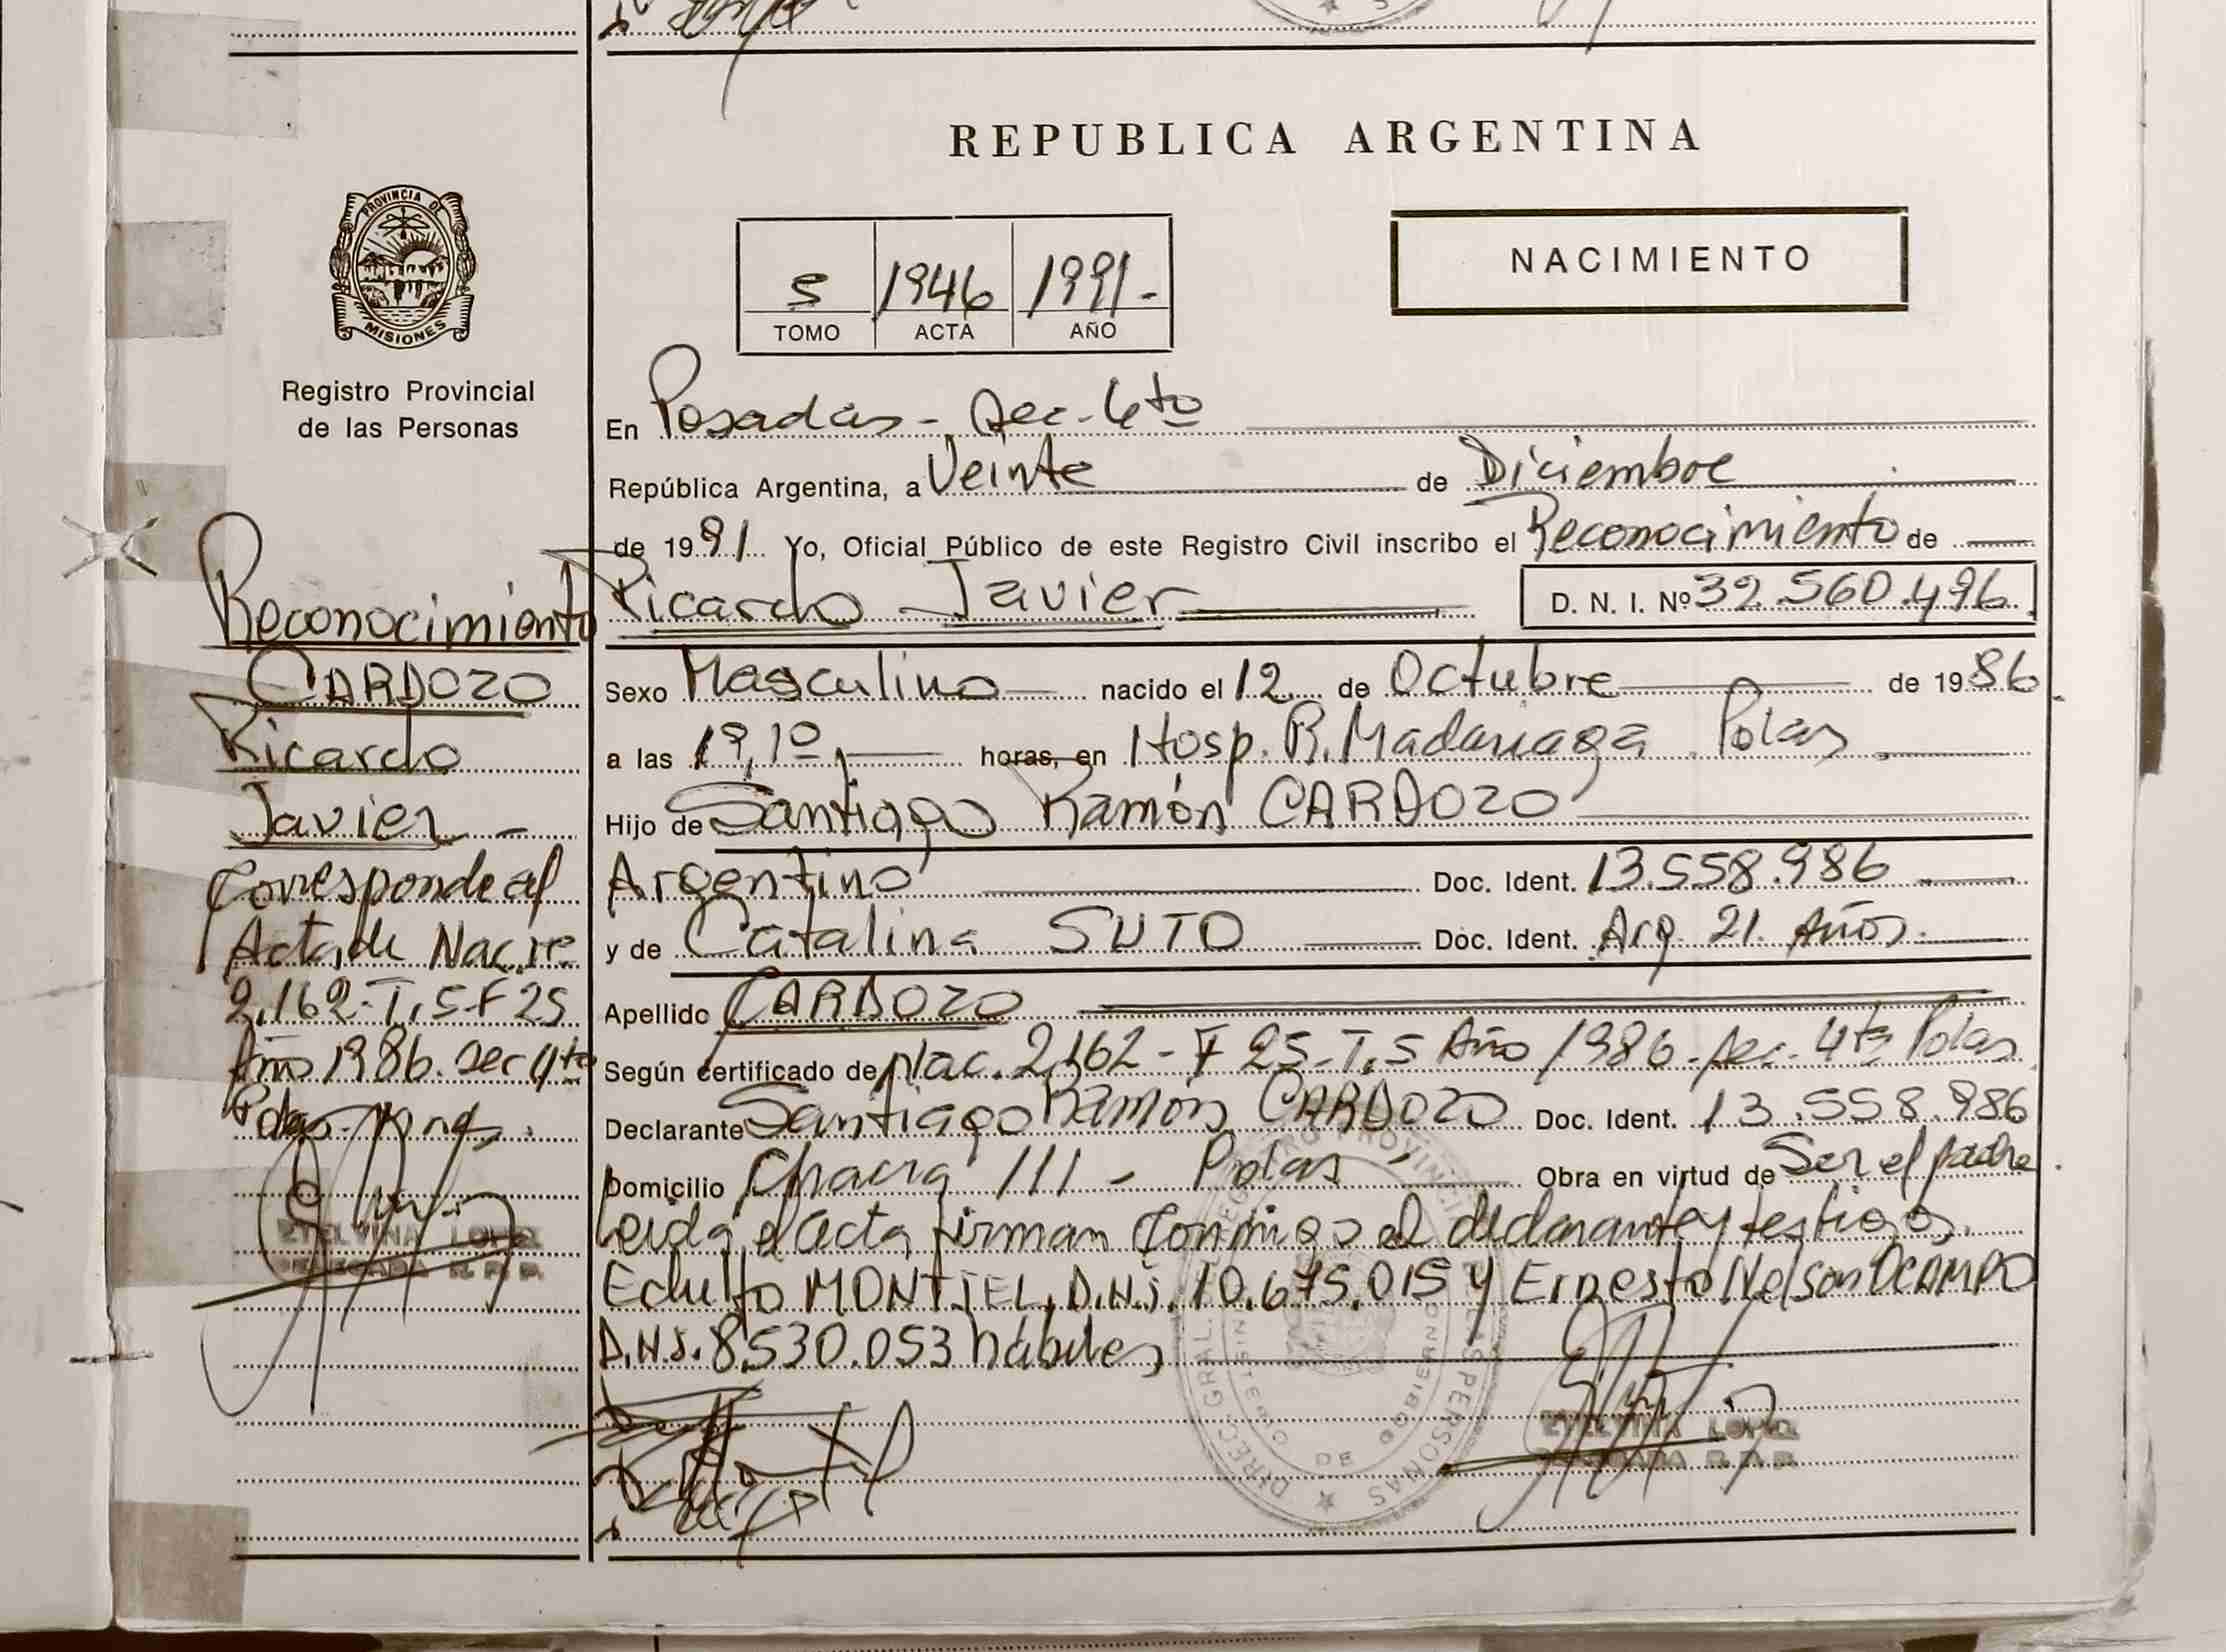 REPUBLICA ARGENTINA
PROVINCIA DE
MISIONES
Registro Provincial
de las Personas
5 1946 1991-
TOMO ACTA AÑO
NACIMIENTO
En Posadas - Sec. 4to
República Argentina, a Veinte de Diciembre
de 1991 Yo, Oficial Público de este Registro Civil inscribo el Reconocimiento de
Ricardo Javier D. N. I. Nº 32.560.496
Sexo Masculino nacido el 12 de Octubre de 1986
a las 19,10 horas, en Hosp. R. Madariaga Pdas
Hijo de Santiago Ramón CARDOZO
Argentino Doc. Ident. 13.558.986
y de Catalina SUTO Doc. Ident. Arg. 21 Años.
Apellido CARDOZO
Según certificado de Nac. 2.162 - F 25 - T. 5 Año 1986 - Sec. 4ta Pdas
Declarante Santiago Ramón CARDOZO Doc. Ident. 13.558.986
Domicilio Chacra 111 - Pdas Obra en virtud de Ser el padre
Leida el acta firman conmigo el declarante y testigos.
MONTIEL, D.N.I. 10.675.015 y Ernesto Nelson OCAMPO
D.N.I. 8.530.053 hábiles
Reconocimiento
CARDOZO
Ricardo
Javier -
Corresponde al
Acta de Nac.
2.162 - T. 5 - F 25
Año 1986. Sec 4ta
Pdas
ETELVINA LOPEZ
DELEGADA R.P.P.
ETELVINA LOPEZ
DELEGADA R.P.P.